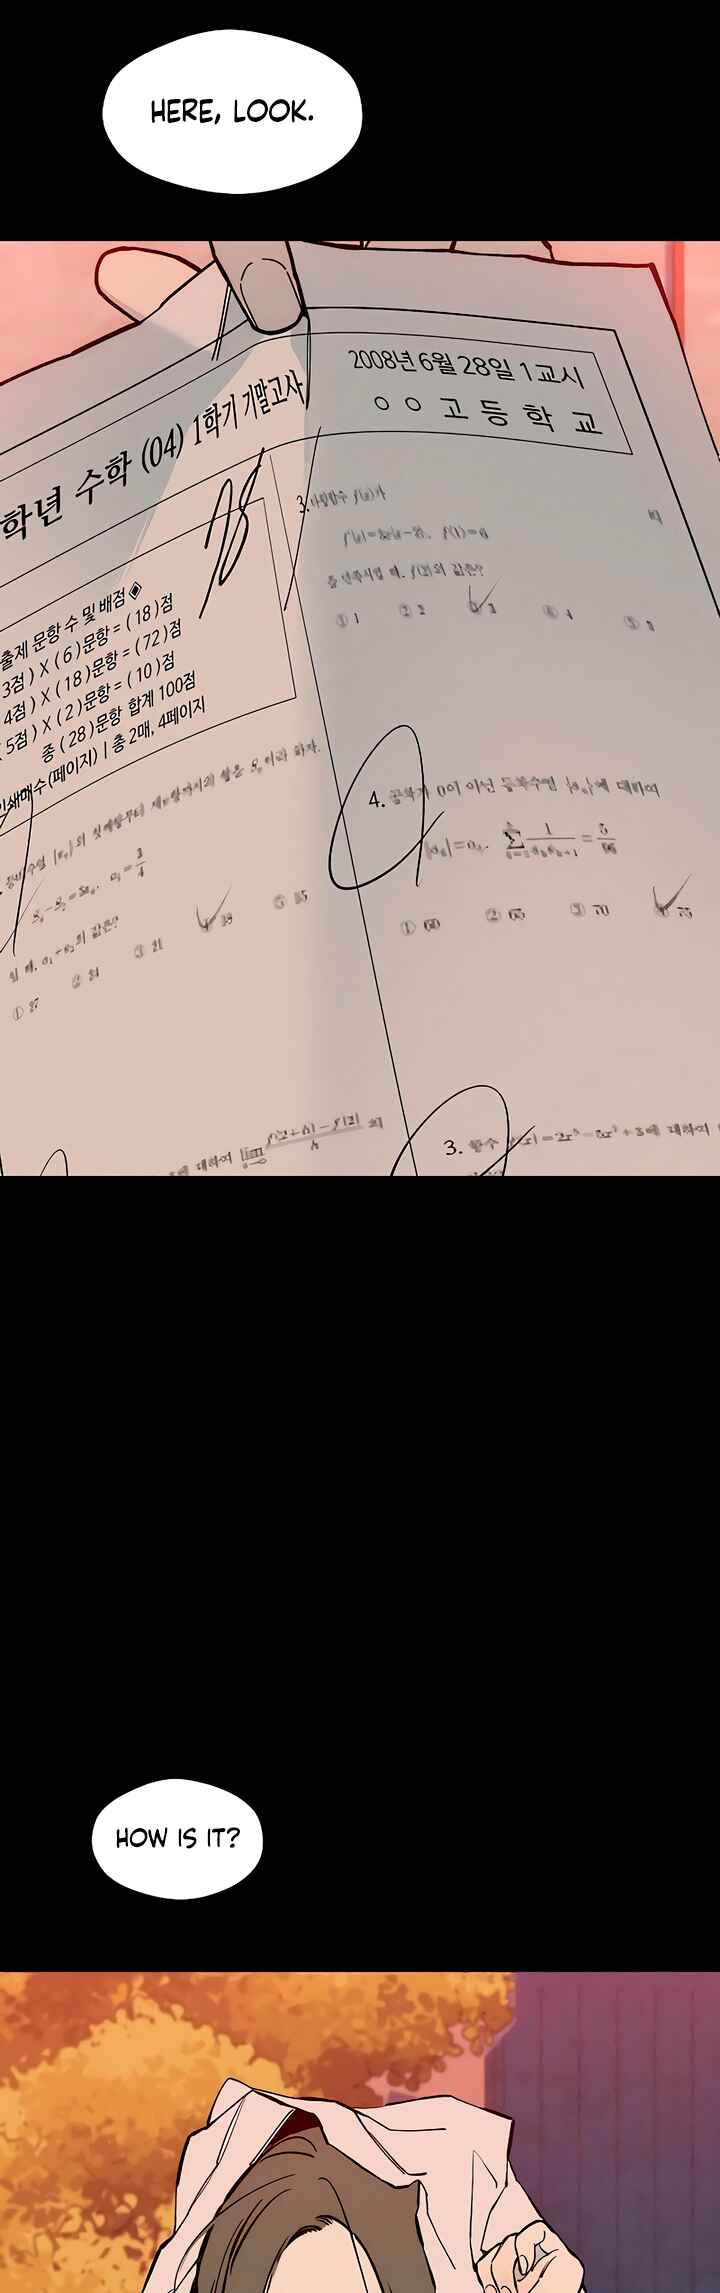 HERE, LOOK.
2008년 6월 28일 1교시
ㅇㅇ고등학교
학년 수학 (04) 1학기 기말고사
출제 문항 수 및 배점◈
3점) X (6)문항 = (18)점
4점) X (18)문항 = (72)점
(5점) X (2)문항 = (10)점
종 (28)문항 합계 100점
인쇄매수(페이지) | 총 2매, 4페이지
3. 다항함수 f(x)가
f(1)=6
를 만족시킬 때, f(2)의 값은?
① 1 ② 2 ③ 3 ④ 4 ⑤ 5
4. 공차가 0이 아닌 등차수열 에 대하여
① 60 ② 65 ③ 70 ④ 75
의 첫째항부터 제n항까지의 합을 Sₙ이라 하자.
일 때, a₁+a₂의 값은?
① 27 ② 24 ③ 21 ④ 18 ⑤ 15
에 대하여 lim 의
3. 함수 에 대하여
HOW IS IT?